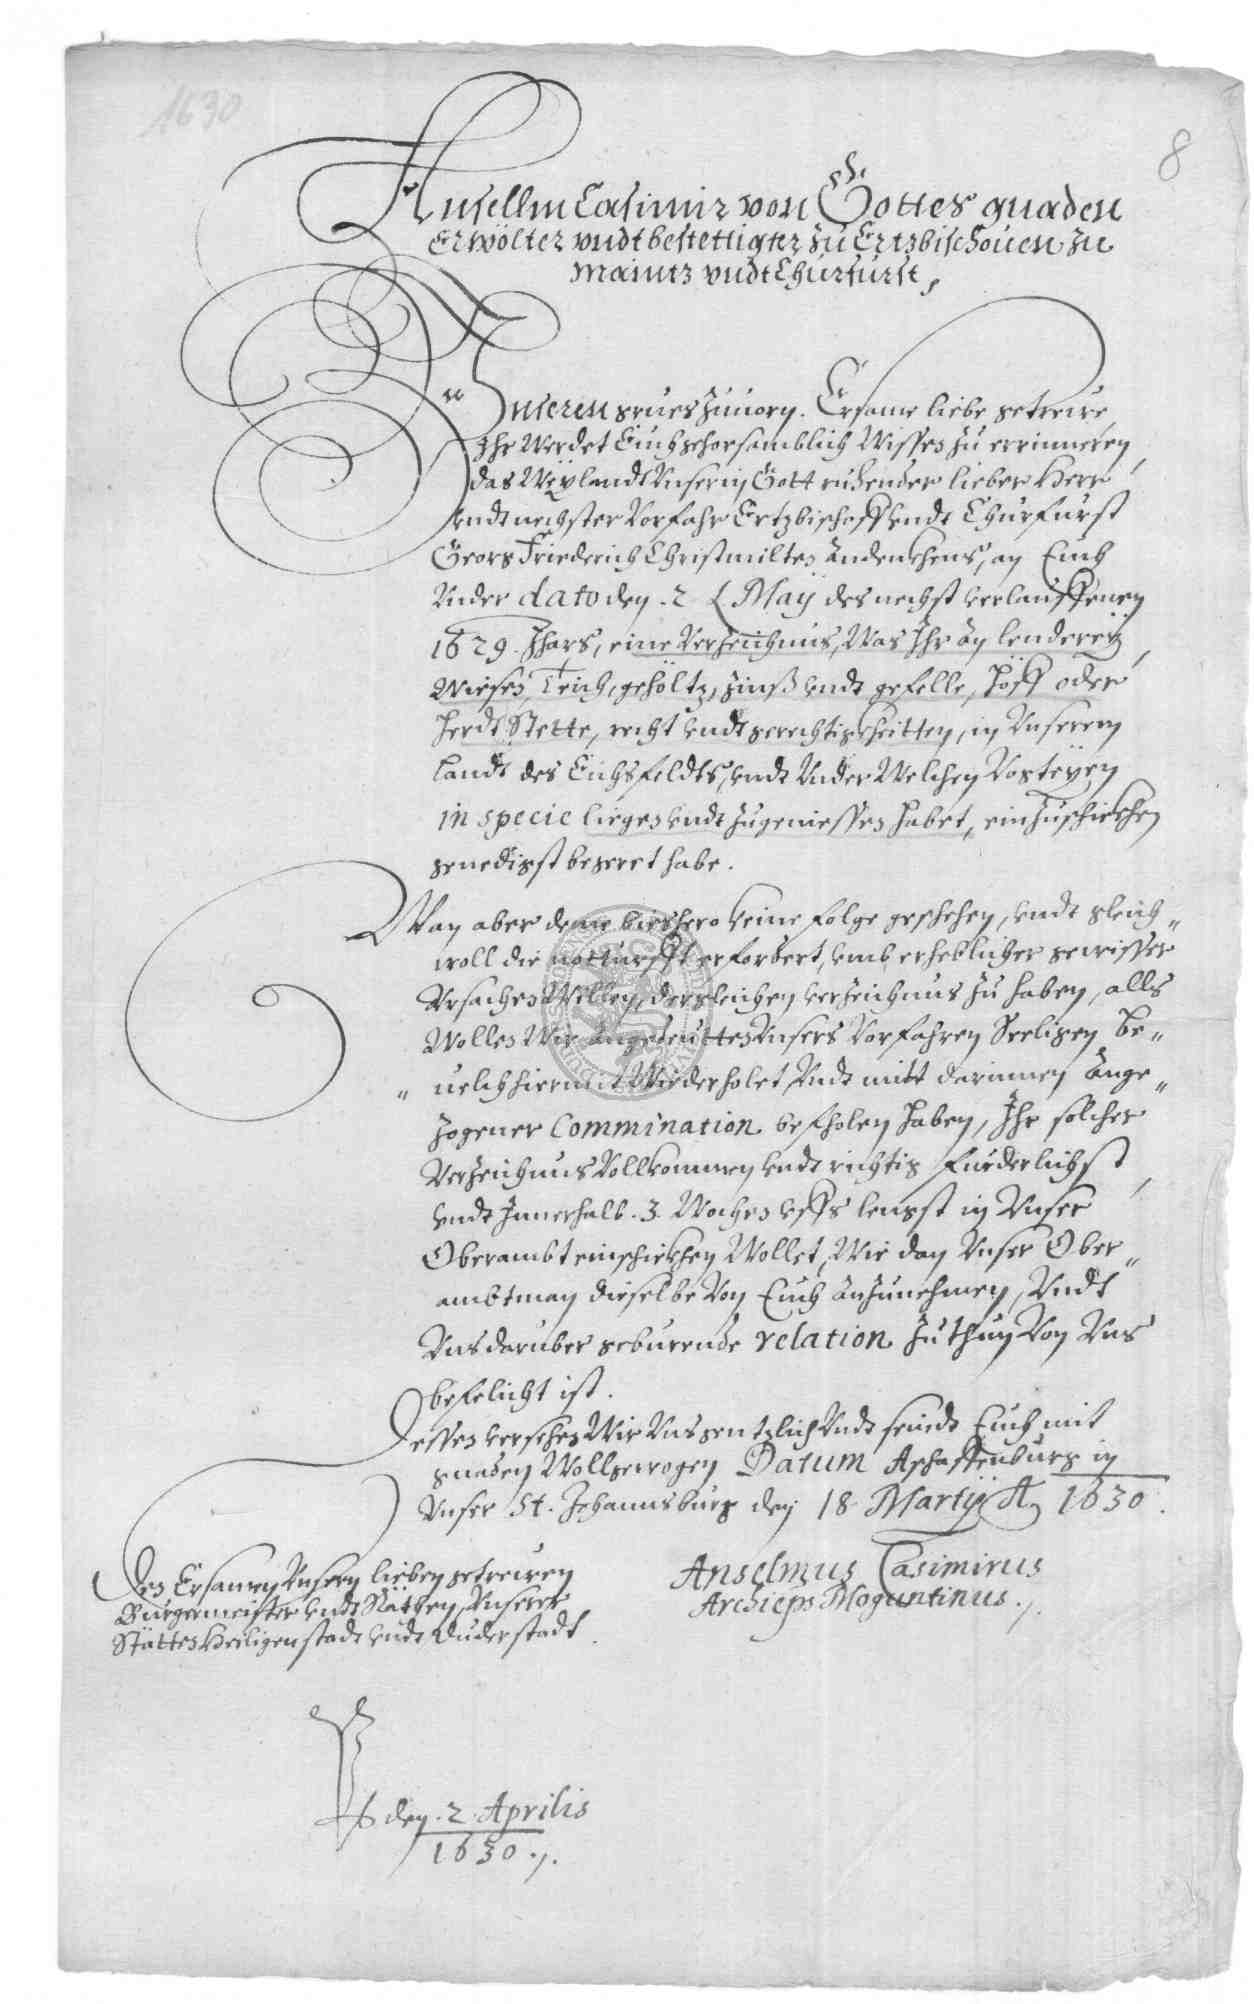 1630
8
Ansellm Casimir von Gottes gnaden
Erwölter vndt bestettigter zu Ertzbischouen zu
Maintz vndt Churfurst,
Vnseren grues zuuorn. Ersame liebe getreue,
Ihr werdet Euch gehorsamblich wissen zu errinneren,
das weylandt Vnser in Gott ruhender lieber Herr
vndt nechster Vorfahr Ertzbischoff vndt Churfurst
Georg Friederich Christmilten Andenckhens, an Euch
Vnder dato den . 2 May des nechst verlauffenen
1629. Jhars, eine Verzeichnus, Was Ihr an lendereÿ,
Wiesen, Teich, gehöltz, zinß vndt gefelle, Höff oder
Herdt Stette, recht vndt gerechtigkheitten, in Vnserem
Landt des Eichsfeldts, vndt Vnder Welchen Vogteÿen
in specie liegen vndt zugeniessen habet, einzuschickhen
genedigst begeret habe.
Wan aber deme bieshero keine folge geschehen, vndt gleich„
woll die notturfft erfordert, vmb erheblicher gewisser
Vrsachen Willen, dergleichen verzeichnus zu haben, alls
Wollen Wir angedeutten Vnsers Vorfahren Seeligen be„
„uelch hiermit Wiederholet Vndt mitt darinnen Ange„
zogener Commination befholen haben, Ihr solcher
Verzeichnus Vollkommen vndt richtig fürderlichst,
vndt Innerhalb . 3. Wochen vffs lengst in Vnser
Oberambt einschickhen Wollet, Wie dan Vnser Ober„
ambtman dieselbe Von Euch anzunehmen, Vndt
Vns daruber geburende relation zu thun Von Vns
befelicht ist.
Dessen versehen Wir Vns gentzlich Vndt seindt Euch mit
gnaden Wollgewogen Datum Aschaffenburg in
Vnser St. Johannsburg den 18 Martij A 1630.
Den Ersamen Vnsern lieben getreuen
Burgermeister vndt Räthen, Vnserer
Stätten Heiligenstadt vndt Duderstadt.
Anselmus Casimirus
Archieps Moguntinus ./.
den . 2. Aprilis
1630 ./.